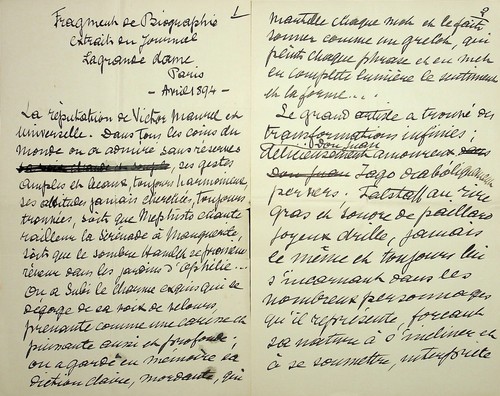 1
Fragment de Biographie
extraits du Journal
La grande dame
Paris
- Avril 1894 -
La réputation de Victor Maurel est
universelle. Dans tous les coins du
monde on a admiré sans réserves
, ses gestes
amples et beaux, toujours harmonieux,
ses attitudes jamais cherchées, toujours
trouvées, soit que Mephisto chante
railleur la Sérénade à Marguerite,
soit que le sombre Hamlet se promène
rêveur dans les jardins d'Ophélie...
On a subi le charme exquis qui se
dégage de sa voix de velours,
prenante comme une caresse et
puissante aussi et profonde ;
on a gardé en mémoire sa
diction claire, mordante, qui
2
martèle chaque mot et le fait
sonner comme un grelot, qui
peint chaque phrase et en met
en complète lumière le sentiment
et la forme...
Le grand artiste a trouvé des
transformations infinies ;
Don Juan
délicieusement amoureux dans
Don Juan Iago diaboliquement
pervers. Falstaff au rire
gras et sonore de paillard
joyeux drille, jamais
le même et toujours lui
s'incarnant dans les
nombreux personnages
qu'il représente, forçant
sa nature à s'incliner et
à se soumettre, interprète